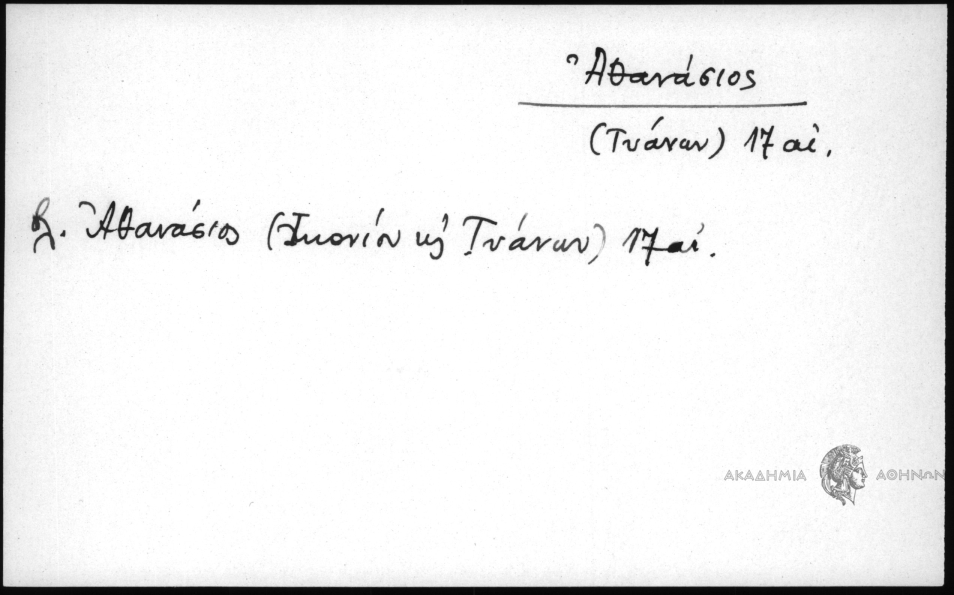 Ἀθανάσιος
(Τυάνων) 17 αἰ.
βλ. Ἀθανάσιος (Ἰκονίου κ̀ Τυάνων) 17 αἰ.
ΑΚΑΔΗΜΙΑ ΑΘΗΝΩΝ